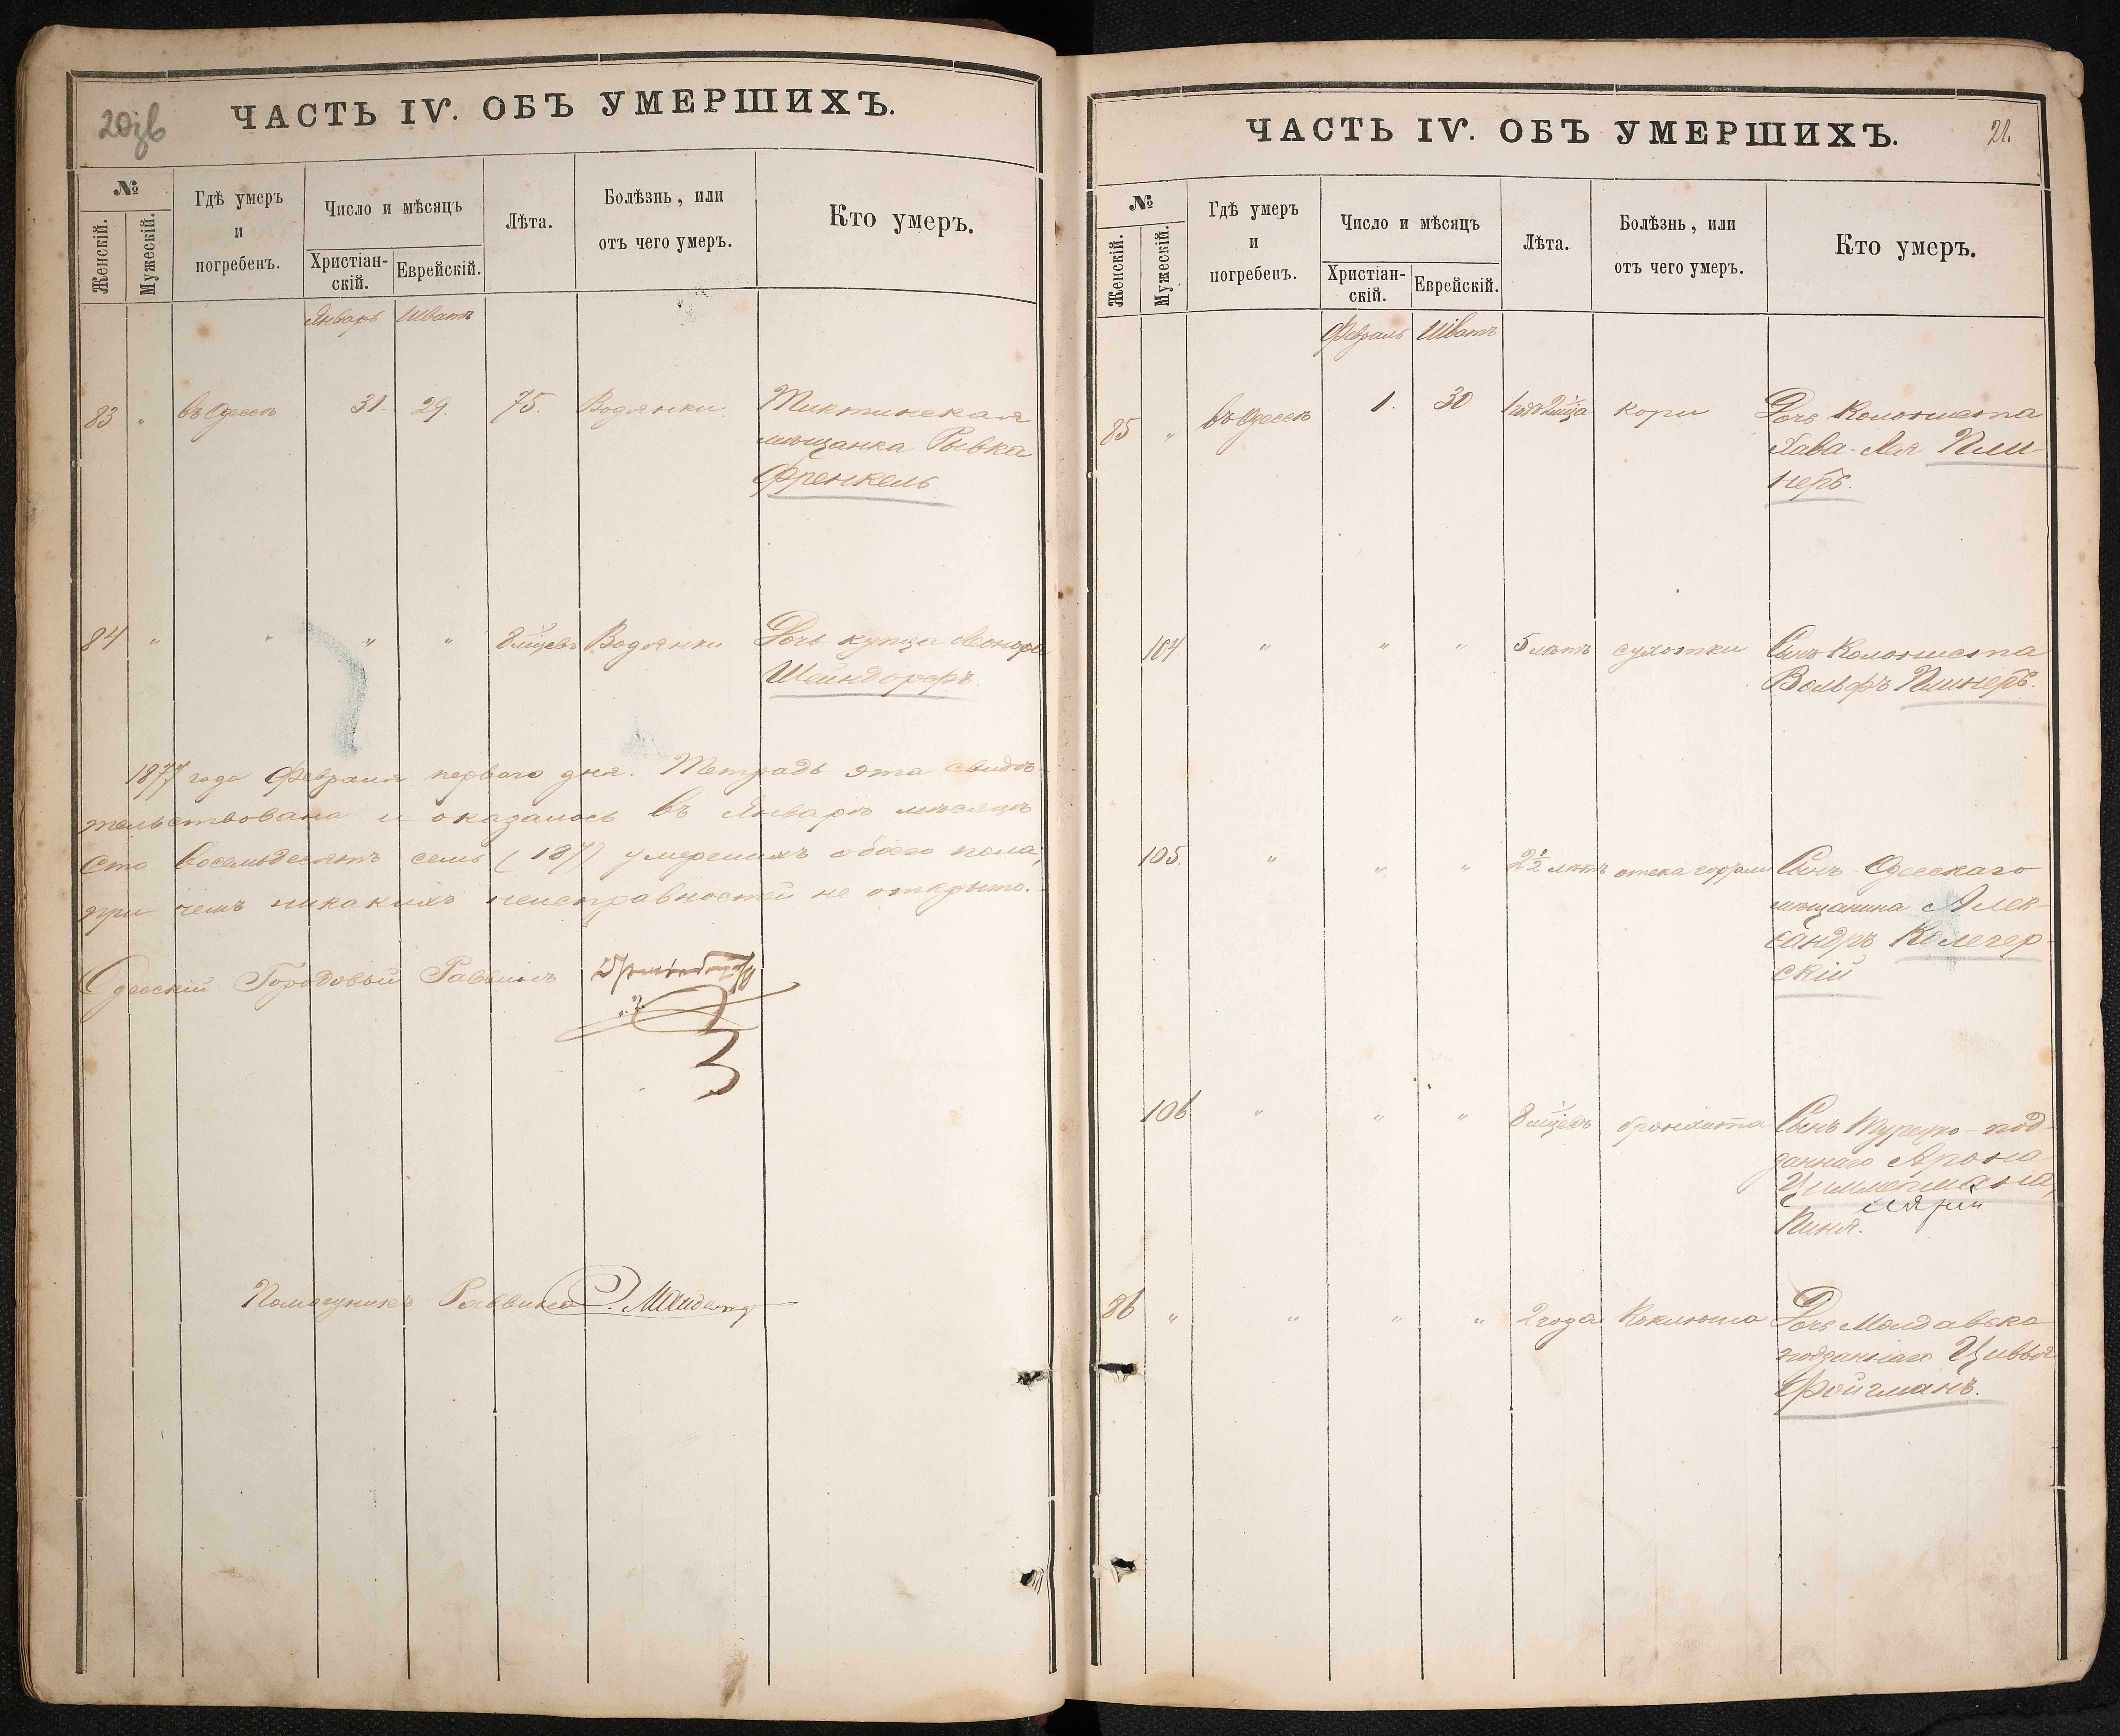 20зв
ЧАСТЬ IV. ОБЪ УМЕРШИХЪ.
№
Женскій.
Мужескій.
Гдѣ умеръ
и
погребенъ.
Число и мѣсяцъ
Христіан-
скій.
Еврейскій.
Лѣта.
Болѣзнь, или
отъ чего умеръ.
Кто умеръ.
Январь Шватъ
83 „ въ Одессѣ 31. 29. 75. Водянки Тиктинская
мѣщанка Рывка
Френкель
84 „ „ „ „ 8 м-цевъ Водянки Дочь купца Леонора
Шейндорфъ
1877 года Февраля перваго дня. Тетрадь эта свидѣ-
тельствована и оказалось въ Январѣ мѣсяцѣ
сто восемьдесятъ семь (187) умершихъ обоего пола,
при чемъ никакихъ неисправностей не открыто.
Одесскій Городовый Раввинъ
Помощникъ Раввина
ЧАСТЬ IV. ОБЪ УМЕРШИХЪ.
21.
№
Женскій.
Мужескій.
Гдѣ умеръ
и
погребенъ.
Число и мѣсяцъ
Христіан-
скій.
Еврейскій.
Лѣта.
Болѣзнь, или
отъ чего умеръ.
Кто умеръ.
Февраль Шватъ
85 „ въ Одессѣ 1. 30 1 годъ 2 м-ца кори Дочь Колониста
Хава-Лея Пли-
неръ.
104 „ „ „ 5 лѣтъ сухотки Сынъ Колониста
Вольфъ Плинеръ.
105. „ „ „ 2½ лѣтъ отека гортани Сынъ Одесскаго
мѣщанина Алек-
сандръ Колегер-
скій
106 „ „ „ 8 м-цевъ бронхита Сынъ Турецко-под-
даннаго Арона
Циммермана,
Пиня.
86 „ „ „ „ 2 года Коклюша Дочь Молдавско
подданнаго Цивья
Фойгманъ.